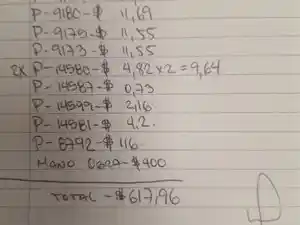 P-9180-$ 11,69
P-9175-$ 11,55
P-9173-$ 11,55
2x P-14580-$ 4,82x2=9,64
P-14587-$ 0,73
P-14599-$ 2,16
P-14581-$ 4,2.
P-8792-$ 116
MANO OBRA-$400
TOTAL-$617,96